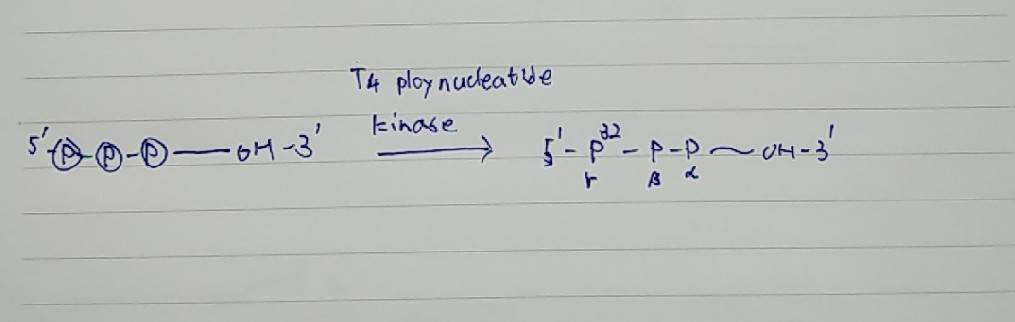 T4 ploynucleatide
kinase
5'-P-P-P — OH-3' → 5'-P³²-P-P ~ OH-3'
γ β α